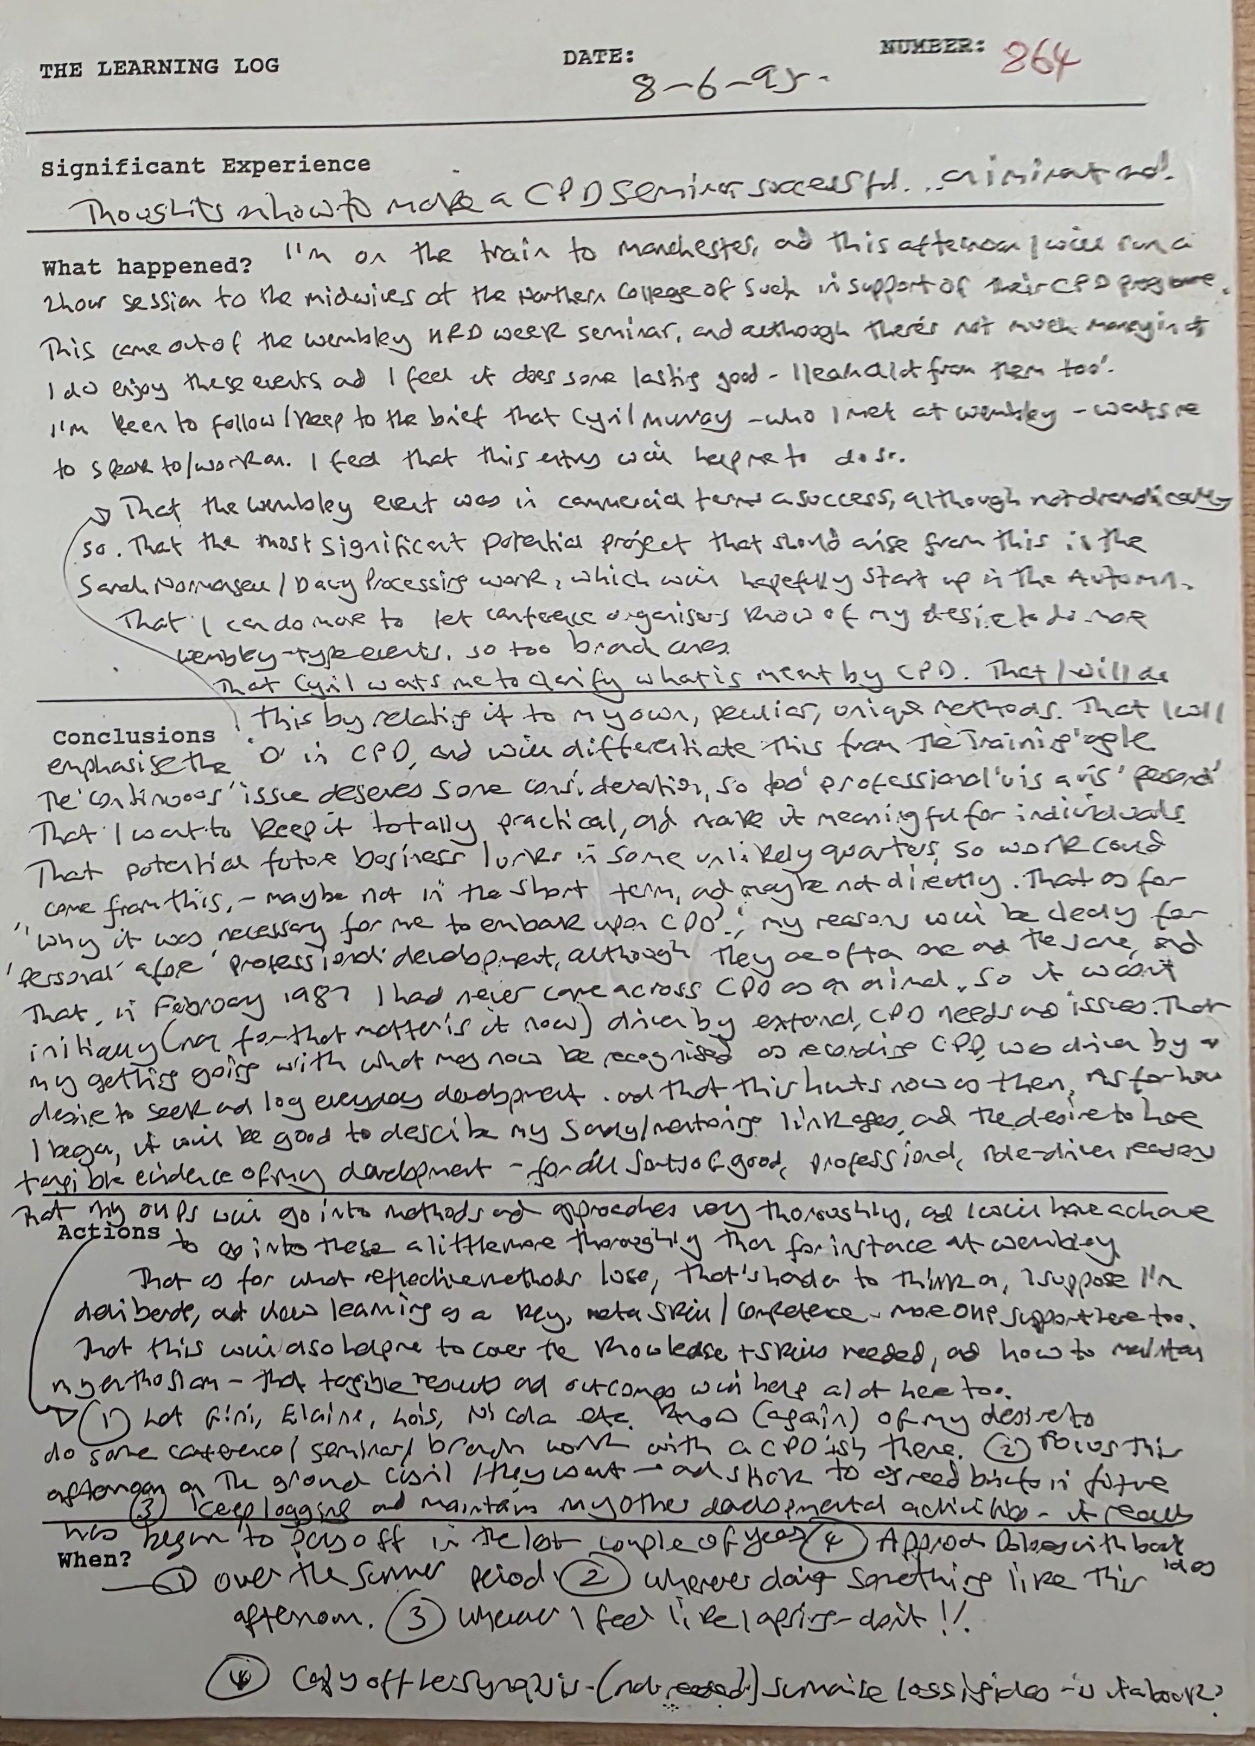 THE LEARNING LOG DATE: 8-6-95. NUMBER: 864
Significant Experience
Thoughts on how to make a CPD seminar successful...
What happened? I'm on the train to Manchester, and this afternoon I will run a
2 hour session to the midwives at the Northern College of Such in support of their CPD programme.
This came out of the Wembley HRD week seminar, and although there's not much money in it
I do enjoy these events and I feel it does some lasting good - I learn a lot from them too.
I'm keen to follow/keep to the brief that Cyril Murray - who I met at Wembley - wants me
to speak to/work on. I feel that this entry will help me to do so.
That the Wembley event was in commercial terms a success, although not dramatically
so. That the most significant potential project that should arise from this is the
Sarah / Davy Processing work, which will hopefully start up in the Autumn.
That I can do more to let conference organisers know of my desire to do more
Wembley-type events, so too branch ones.
That Cyril wants me to clarify what is meant by CPD. That I will do
Conclusions this by relating it to my own, peculiar, unique methods. That I will
emphasise the 'D' in CPD, and will differentiate this from the Training angle
The 'continuous' issue deserves some consideration, so too 'professional' vis a vis 'personal'
That I want to keep it totally practical, and make it meaningful for individuals
That potential future business lurks in some unlikely quarters, so work could
come from this, - maybe not in the short term, and maybe not directly. That as for
"why it was necessary for me to embark upon CPD?", my reasons will be clearly for
'personal' afore 'professional' development, although they are often one and the same, and
That, in February 1987 I had never come across CPD as an animal, so it wasn't
initially (nor for that matter is it now) driven by external, CPD needs and issues. That
my getting going with what may now be recognised as recording CPD, was driven by a
desire to seek and log everyday development. and that this hunts now as then, As for how
I began, it will be good to describe my study/mentoring linkages, and the desire to have
tangible evidence of my development - for all sorts of good, professional, role-driven reasons
That my OHPs will go into methods and approaches very thoroughly, and I will have a chance
Actions to go into these a little more thoroughly than for instance at Wembley
That as for what reflective methods I use, that's harder to think on, I suppose I'm
deliberate, and show learning as a key, meta skill/competence - more OHP support here too.
That this will also help me to cover the knowledge + skills needed, and how to maintain
my enthusiasm - that tangible results and outcomes will help a lot here too.
(1) Let Gini, Elaine, Lois, Nicola etc. know (again) of my desire to
do some conference/seminar/branch work with a CPD-ish theme. (2) Focus this
afternoon on the ground Cyril/they want - and stick to agreed briefs in future
(3) Keep logging and maintain my other developmental activities - it really
has begun to pay off in the last couple of years (4) Approach with book ideas
When? (1) over the summer period. (2) whenever doing something like this
afternoon. (3) whenever I feel like lapsing - don't!!
(4) off synopsis - (not) summarise